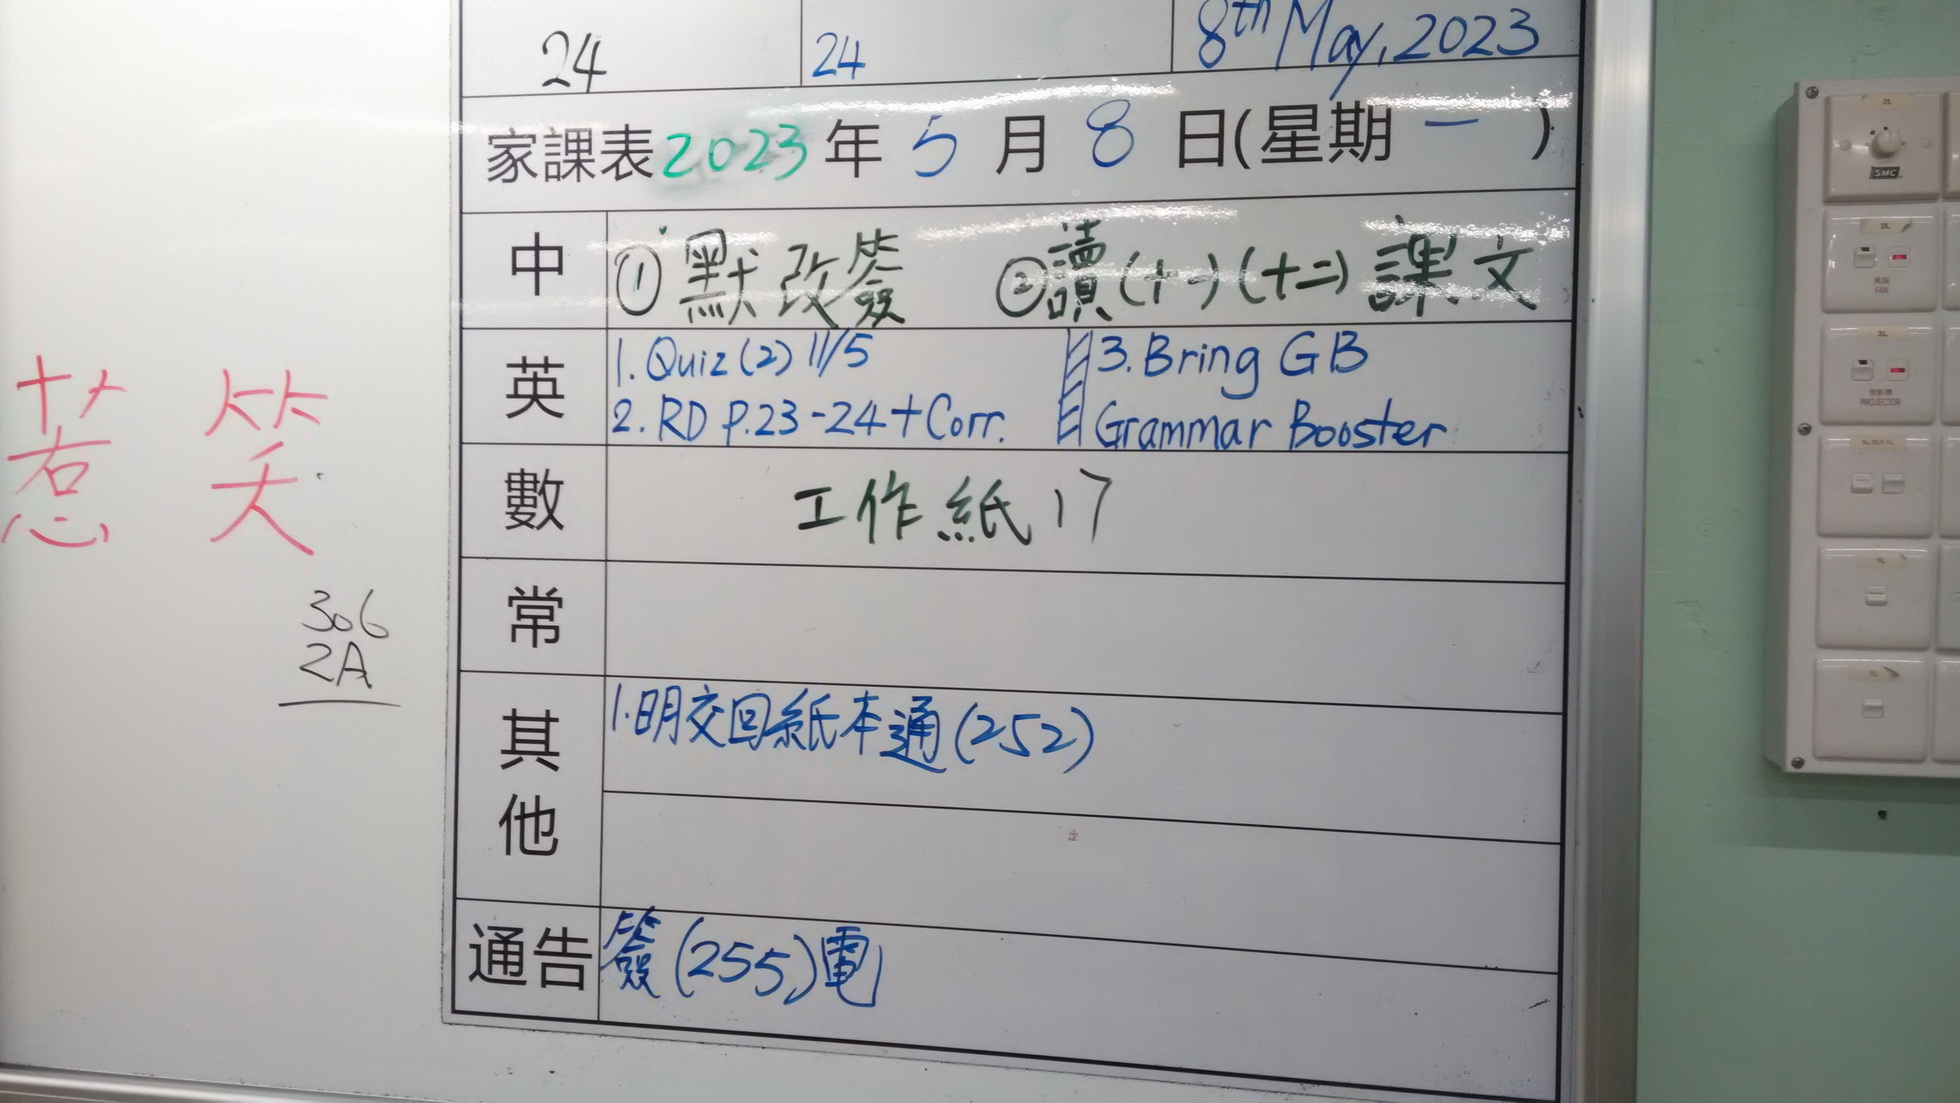 24 24 8th May, 2023
家課表 2023 年 5 月 8 日(星期 一 )
中 ① 默改簽 ② 讀(十一)(十二) 課文
英 1. Quiz (2) 11/5 3. Bring GB
2. RD P.23-24 + Corr. Grammar Booster
數 工作紙 17
常
其他 1. 明交回紙本通(252)
通告 簽(255)電
惹 笑
306
2A
SMC
FAN
PROJECTOR